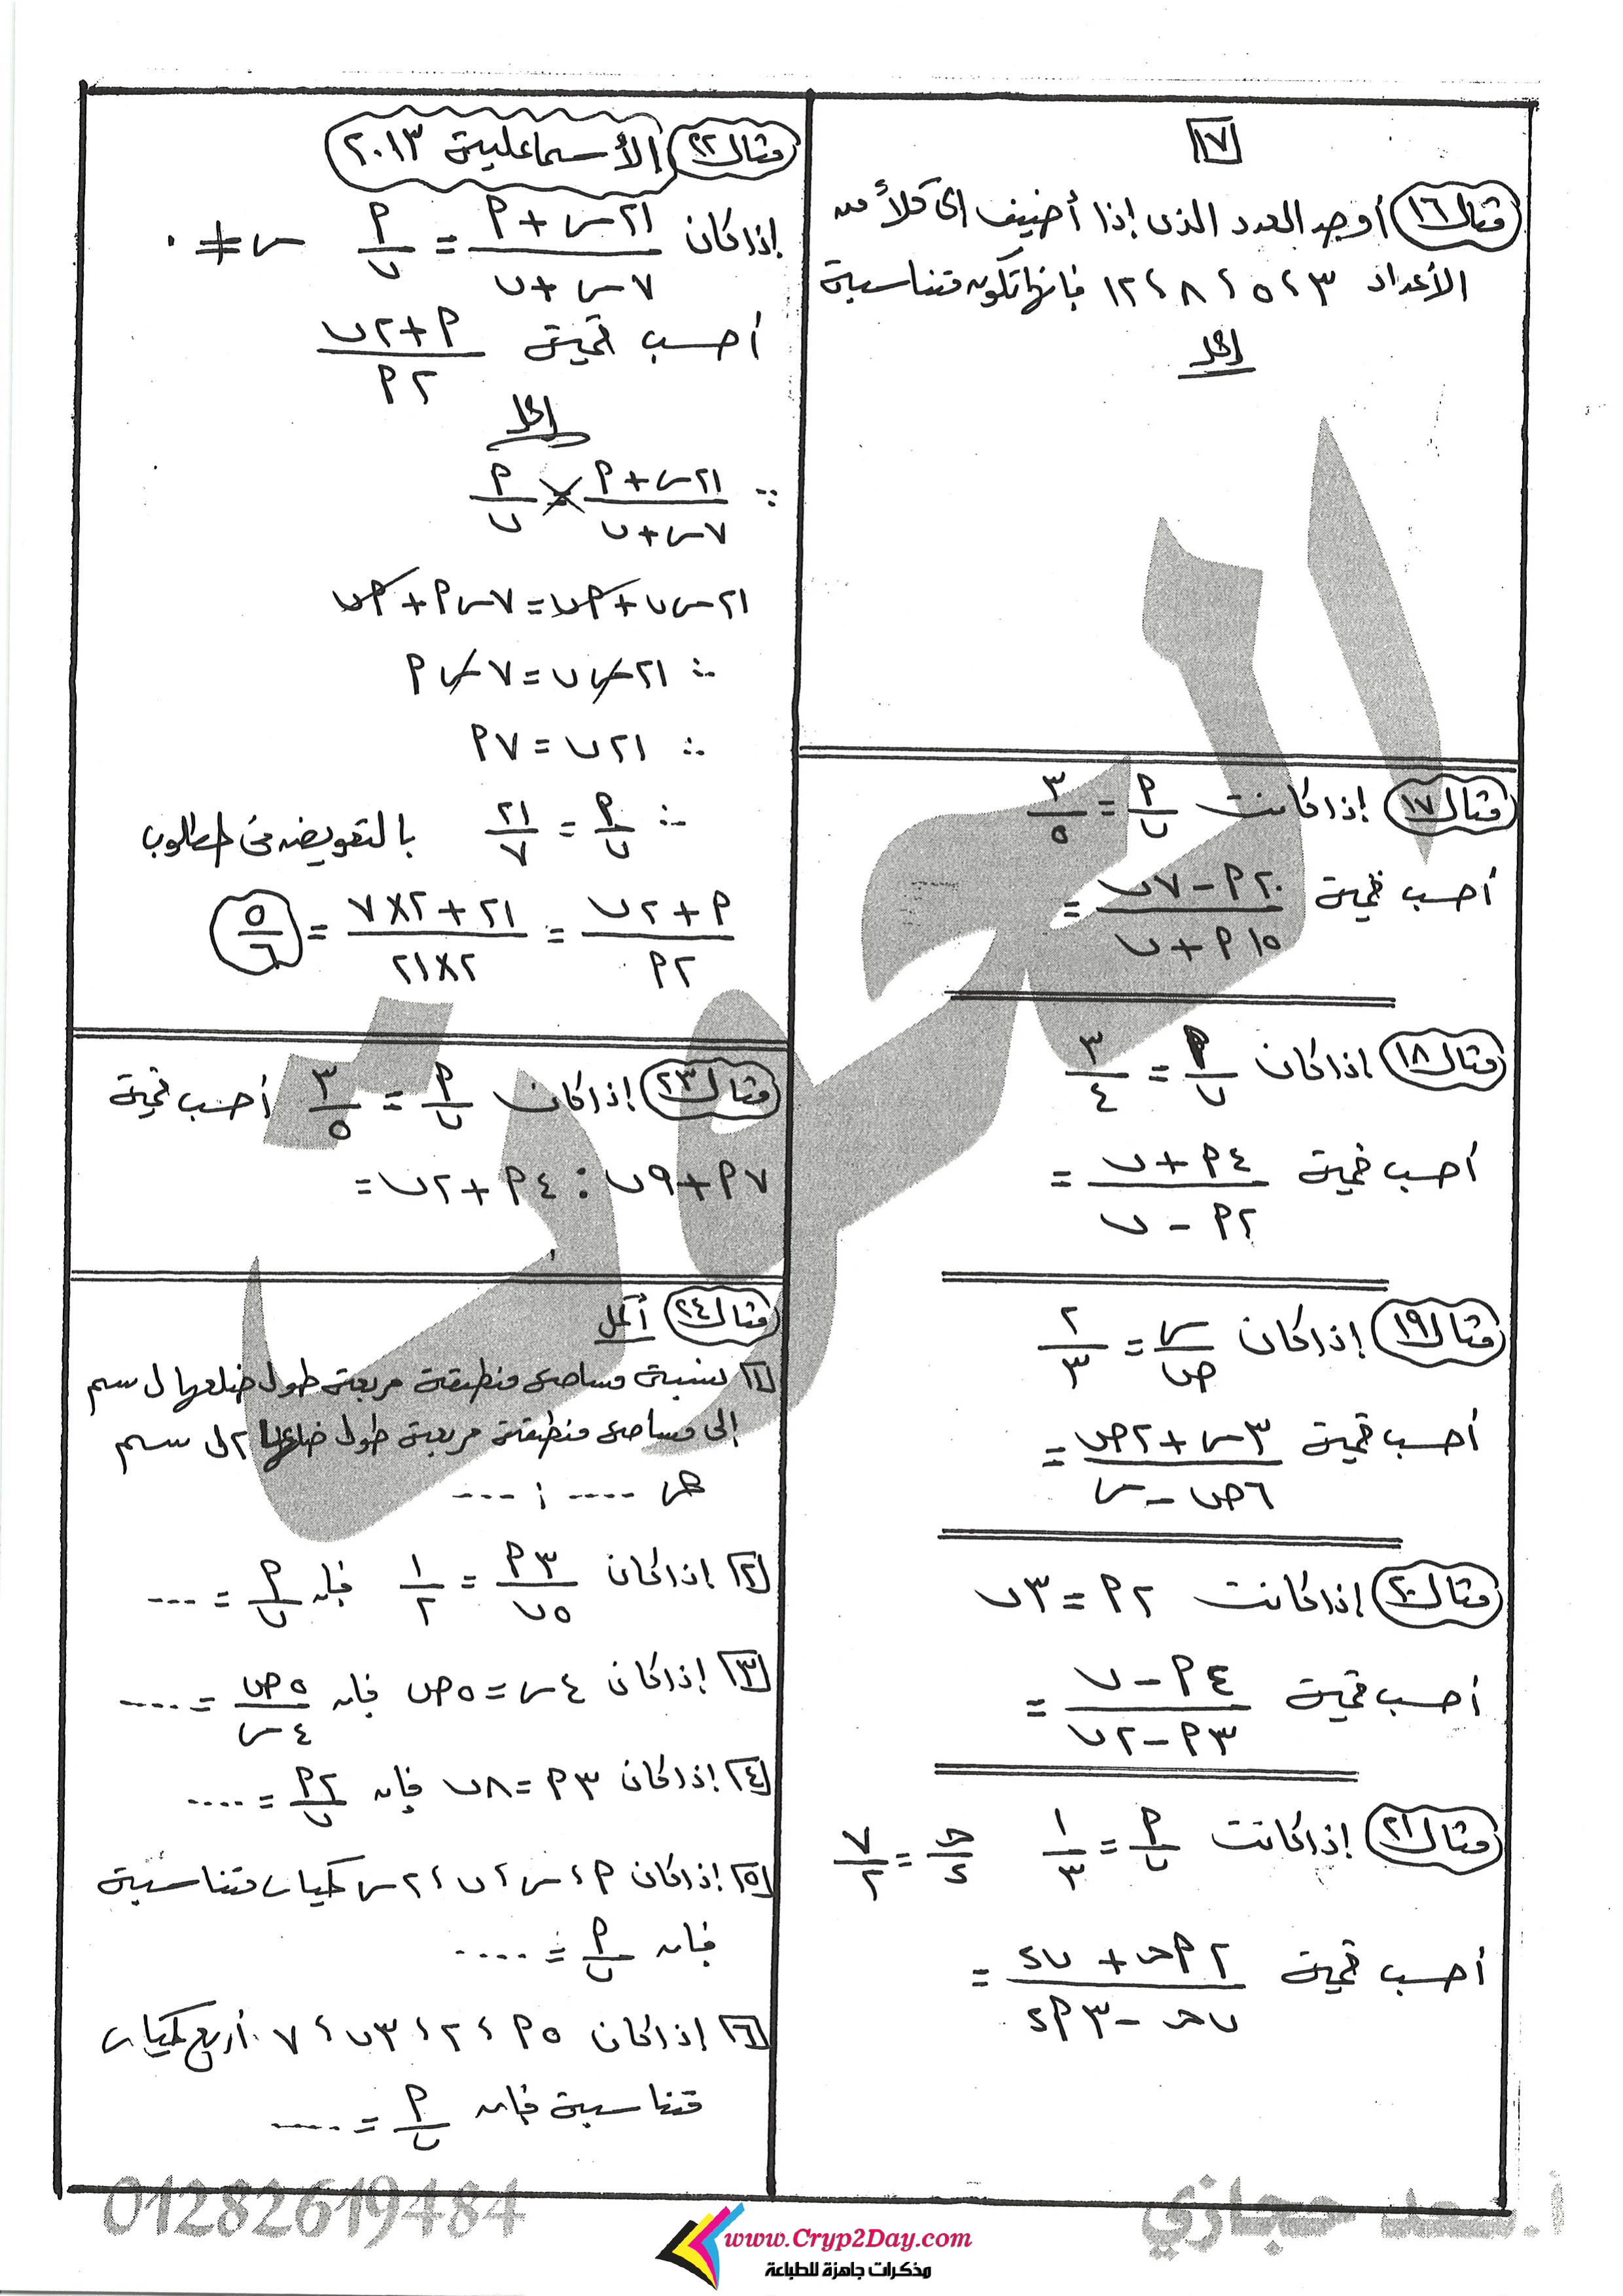 ١٧
مثال ١٦ أوجد العدد الذى إذا أضيف الى كلاً من
الأعداد ٣ ، ٥ ، ٨ ، ١٢ فإنها تكون متناسبة
الحل
مثال ١٧ إذا كانت أ/ب = ٣/٥
أحسب قيمة (٢٠أ - ٧ب)/(١٥أ + ب) =
مثال ١٨ إذا كان أ/ب = ٣/٤
أحسب قيمة (٤أ + ب)/(٢أ - ب) =
مثال ١٩ إذا كان س/ص = ٢/٣
أحسب قيمة (٣س + ٢ص)/(٦ص - س) =
مثال ٢٠ إذا كانت ٢أ = ٣ب
أحسب قيمة (٤أ - ب)/(٣أ - ٢ب) =
مثال ٢١ إذا كانت أ/ب = ١/٣ ج/د = ٧/٢
أحسب قيمة (٢أج + ب د)/(ب ج - ٣أ د) =
مثال ٢٢ الأسماعلية ٢٠١٣
إذا كان (٢١س + أ)/(٧س + ب) = أ/ب س ≠ ٠
أحسب قيمة (أ + ٢ب)/٢أ
الحل
∵ (٢١س + أ)/(٧س + ب) = أ/ب
٢١س ب + أب = ٧س أ + أب
∴ ٢١س ب = ٧س أ
∴ ٢١ب = ٧أ
∴ أ/ب = ٢١/٧ بالتعويض فى المطلوب
(أ + ٢ب)/٢أ = (٢١ + ٢×٧)/(٢×٢١) = ٥/٦
مثال ٢٣ إذا كان أ/ب = ٣/٥ أحسب قيمة
٧أ + ٩ب : ٤أ + ٢ب =
مثال ٢٤ أكمل
١ نسبة مساحة منطقة مربعة طول ضلعها ل سم
إلى مساحة منطقة مربعة طول ضلعها ٢ل سم
هى .... : ....
٢ إذا كان ٣أ/٥ب = ١/٢ فإن أ/ب = ....
٣ إذا كان ٤س = ٥ص فإن ٥ص/٤س = ....
٤ إذا كان ٣أ = ٨ب فإن ٢أ/ب = ....
٥ إذا كان أ ، س ، ب ، ٢س كميات متناسبة
فإن أ/ب = ....
٦ إذا كان ٥أ ، ٢ ، ٣ب ، ٧ أربع كميات
متناسبة فإن أ/ب = ....
أ.سعد حجازي
01282619484
www.Cryp2Day.com
مذكرات جاهزة للطباعة